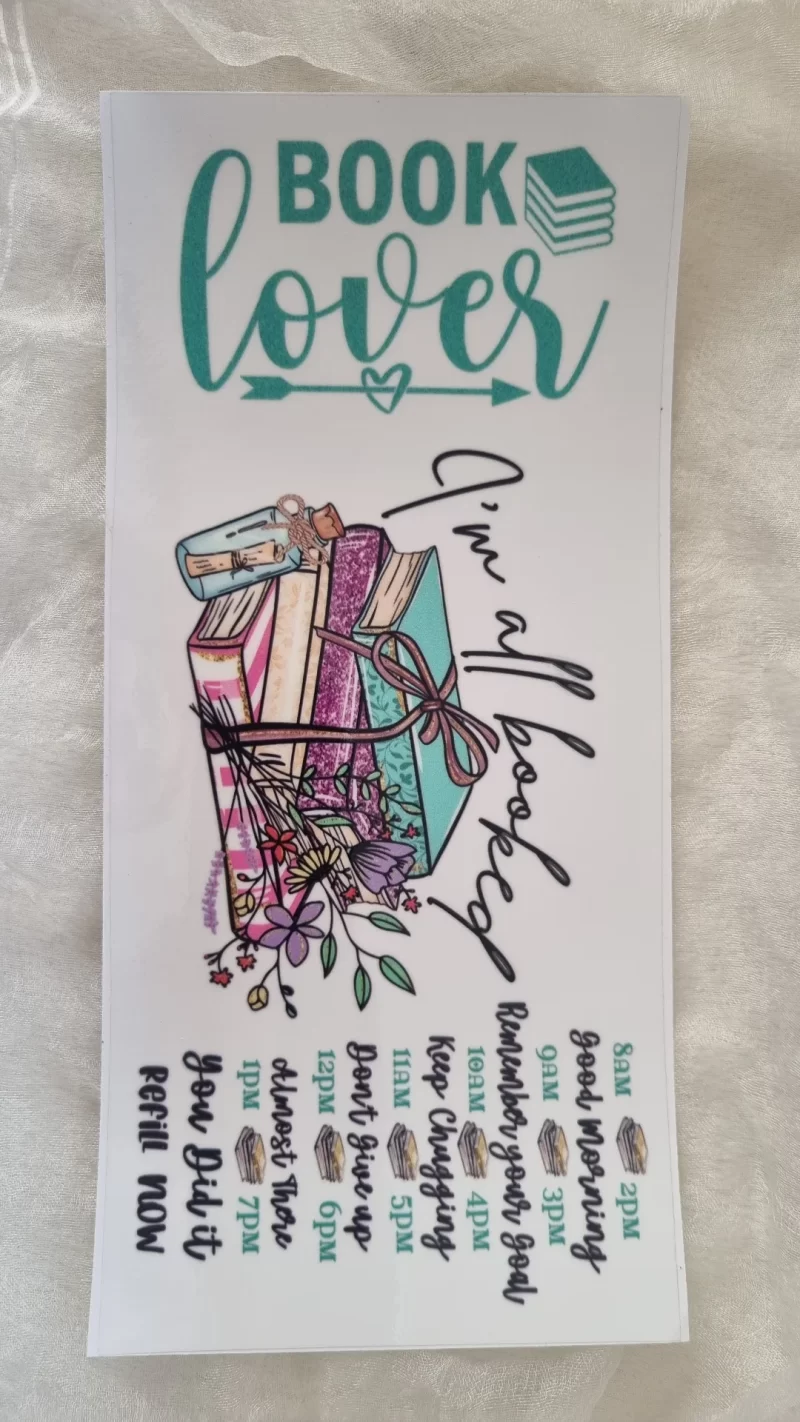 BOOK
lover
I'm all booked
8am 2pm
Good Morning
9am 3pm
Remember your goal
10am 4pm
Keep Chugging
11am 5pm
Don't Give up
12pm 6pm
Almost There
1pm 7pm
You Did it
Refill Now